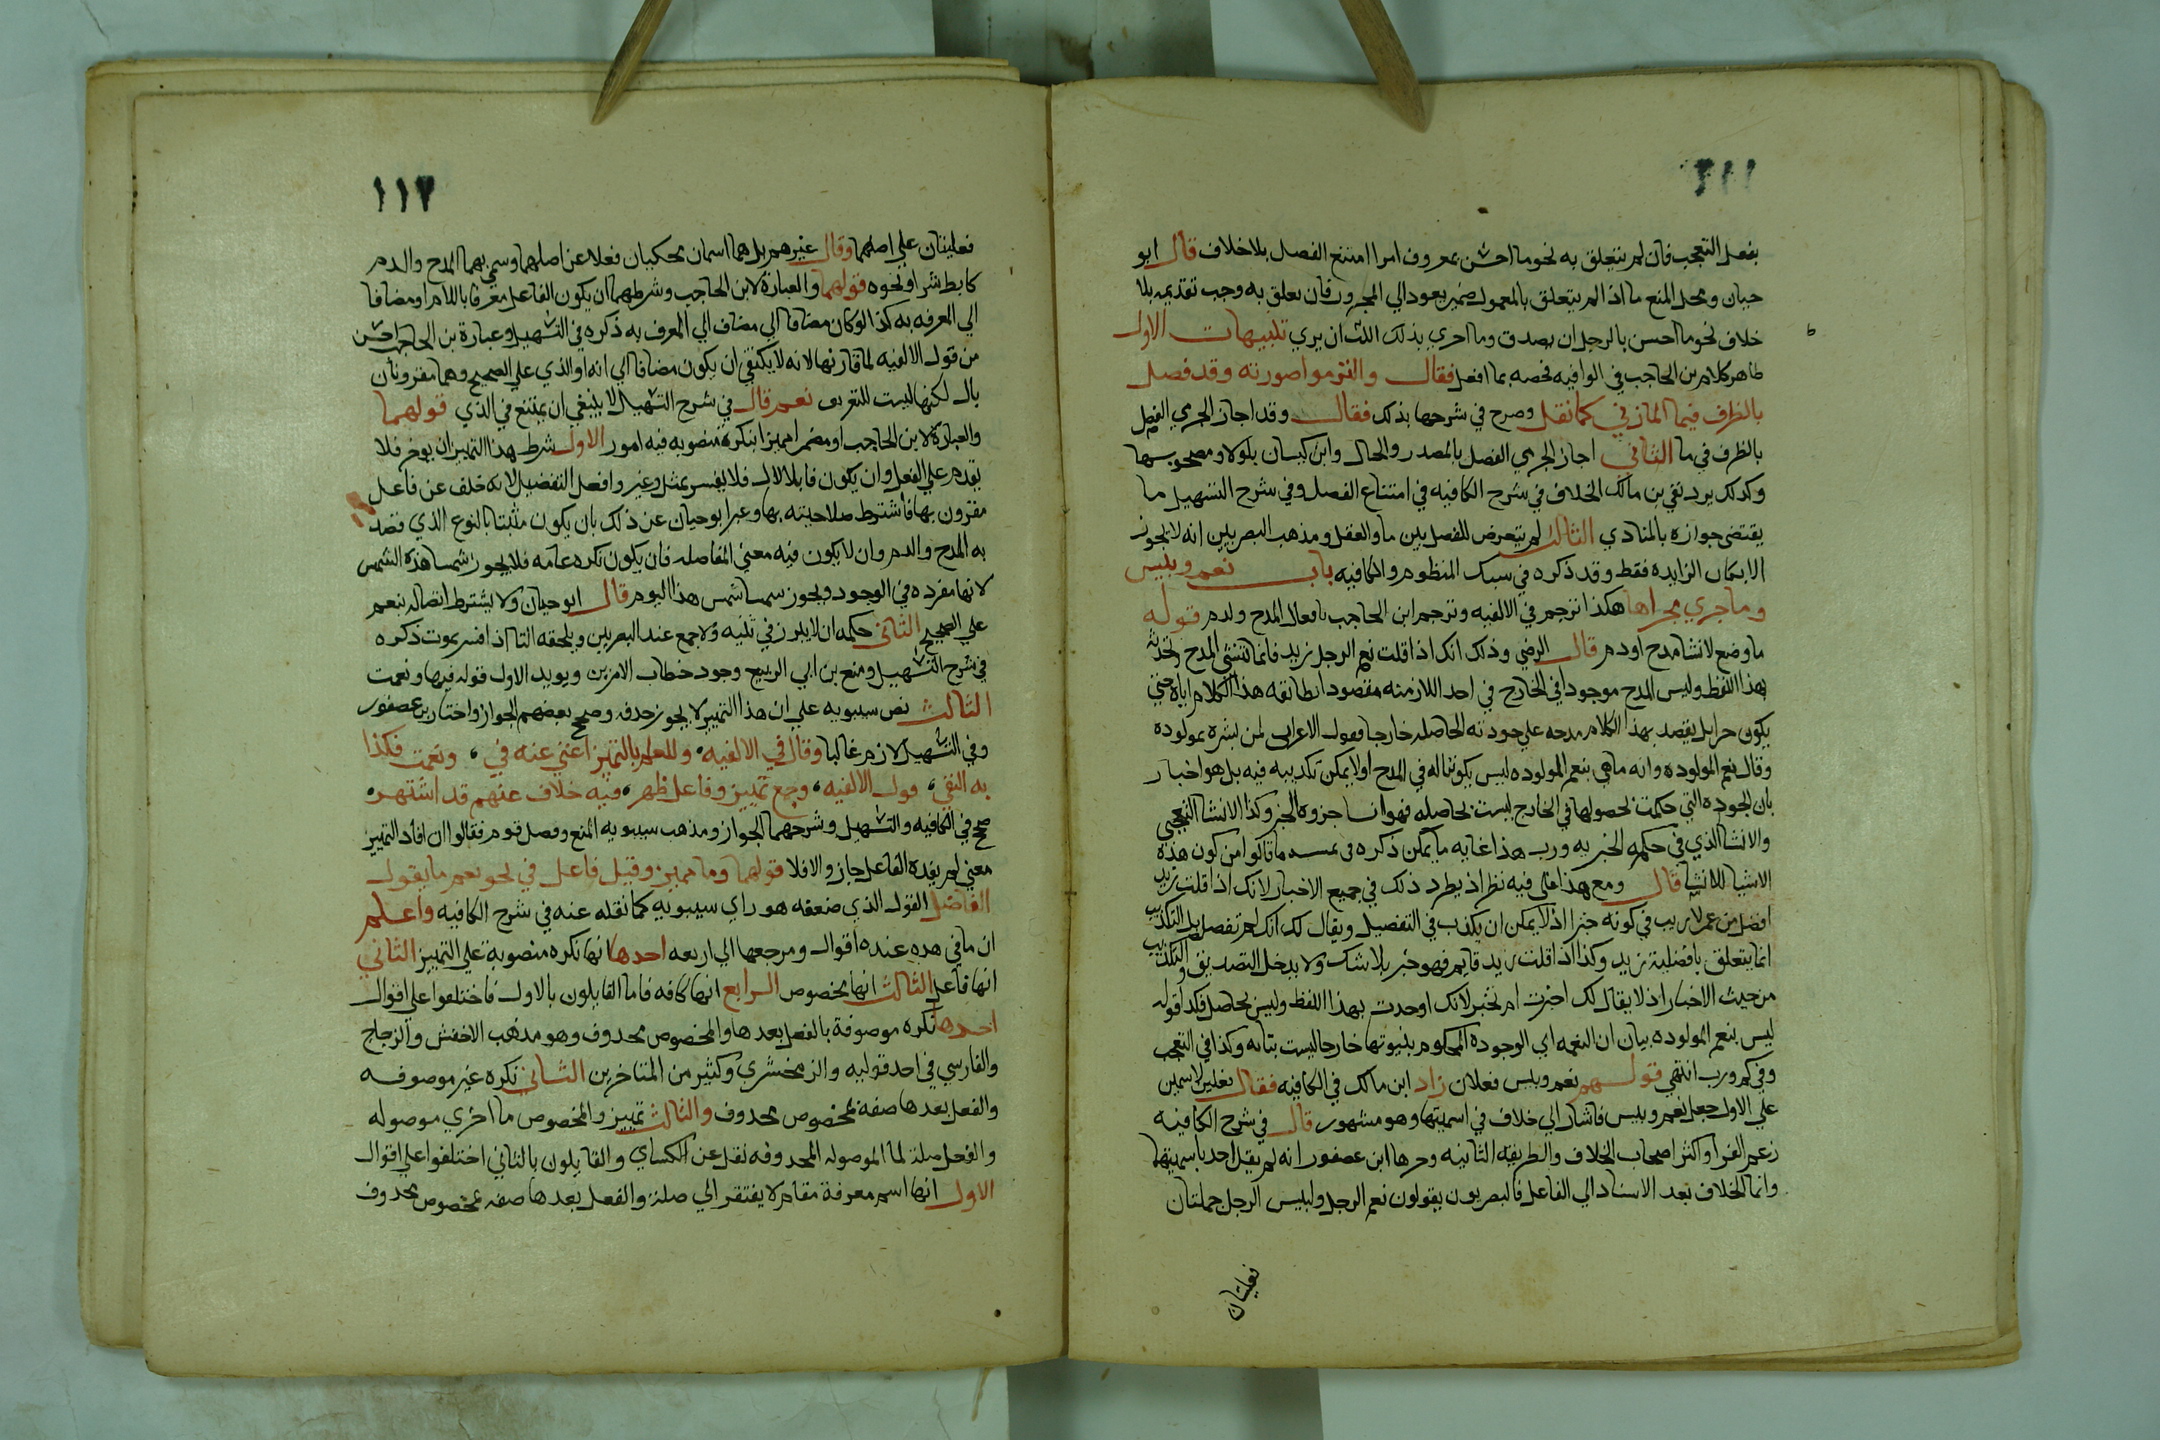 بفعل التعجب فان لم يتعلق به نحو ما احسن بمعروف امرا امتنع الفصل بلا خلاف قال ابو
حيان ومحل المنع ما اذا لم يتعلق بالمعمول ضمير يعود الي المجرور فان تعلق به وجب تقديمه بلا
خلاف نحو ما احسن بالرجل ان يصدق وما احري بذي اللب ان يري تنبيهات الاول
ظاهر كلام بن الحاجب في الوافيه تخصه بما افعل فقال والتزموا صورته وقد فصل
بالظرف فيما المازني كما نقل وصرح في شرحها بذلك فقال وقد اجاز الجرمي الفصل
بالظرف في ما الثاني اجاز الجرمي الفصل بالمصدر والحال وابن كيسان بلولا ومصحوبها
وكذلك يرد نفي بن مالك الخلاف في شرح الكافيه في امتناع الفصل وفي شرح التسهيل ما
يقتضي جوازه بالمنادي الثالث لم يتعرض للفصل بين ما والفعل ومذهب البصريين انه لا يجوز
الا بكان الزايده فقط وقد ذكره في سبك المنظوم والكافيه باب نعم وبئيس
وما جري مجراها هكذا ترجم في الالفيه وترجم ابن الحاجب بافعال المدح ولدم قوله
ما وضع لانشا مدح او دم قال الرضي وذلك انك اذا قلت نعم الرجل زيد فانما تنشي المدح وتحدثه
بهذا اللفظ وليس المدح موجودا في الخارج في احد الازمنه مقصود ا بطائقه هذا الكلام اياه حتي
يكون خبرا بل يقصد بهذا الكلام مدحه علي جودته الحاصله خارجا فقول الاعرابي لمن بشره بمولوده
وقال نعم المولوده والله ما هي بنعم المولوده ليس تكذيبا له في المدح اذ لا يمكن تكذيبه فيه بل هو اخبار
بان الجوده التي حكمت بحصولها في الخارج ليست بحاصله فهو انشا جزوه الخبر وكذا الانشا التعجبي
والانشا الذي في حكمه الخبريه ورب هذا غايه ما يمكن ذكره في تمشيه ما قالوا من كون هذه
الاشيا للانشا قال ومع هذا فلي فيه نظر اذ يطرد ذلك في جميع الاخبار لانك اذا قلت زيد
افضل من عمرو لا ريب في كونه خبرا اذ لا يمكن ان يكذب في التفضيل ويقال لك انك لم تفضل بل التكذيب
انما يتعلق بافضلية زيد وكذا اذا قلت زيد قايم فهو خبر بلا شك ولا يدخل التصديق والتكذيب
من حيث الاخبار اذ لا يقال لك اخبرت ام لم تخبر لانك اوجدت بهذا اللفظ وليس يحصل فكذا قوله
ليس بنعم المولوده بيان ان النعميه اي الجوده المحكوم بثبوتها خارجا ليست ثابته وكذا في التعجب
وفي كم ورب انتهي قولهم نعم وبيس فعلان زاد ابن مالك في الكافيه فقال فعلين لا سمين
علي الاول جعل نعم وبيس فاشار الي خلاف في اسميتها وهو مشهور قال في شرح الكافيه
زعم الفرا واكثر اصحاب الخلاف والطريقه الثانيه وحررها ابن عصفور انه لم يقل احد باسميتها
وانما الخلاف بعد الاسناد الي الفاعل فالبصريون يقولون نعم الرجل ولبيس الرجل جملتان
فعليتان
١١٢
فعليتان علي اصلهما وقال غيرهم بل هما اسمان محكيان نقلا عن اصلهما وسمي بهما المدح والدم
كتابط شرا ونحوه قولهما والعبارة لابن الحاجب وشرطهما ان يكون الفاعل معرفا باللام او مضافا
الي المعرفه به كذا لو كان مضافا الي مضاف الي المعرف به ذكره في التسهيل وعبارة بن الحاجب احسن
من قول الالفيه لما قارنها لانه لا يكتفي ان يكون مضافا الي انه او الذي علي الصحيح وهما مقرونان
بال لكنها ليست للتعريف نعم قال في شرح التسهيل لا ينبغي ان يمتنع في الذي قولهما
والعبارة لابن الحاجب او مضمرا مميزا بنكرة منصوبه فيه امور الاول شرط هذا التمييز ان يوخر فلا
يقدم علي الفعل وان يكون قابلا لال فلا يفسر بمثل وغير وافعل التفضيل لانه خلف عن فاعل
مقرون بها فاشترط صلاحيته بها وعبر ابو حيان عن ذلك بان يكون مثبتا بالنوع الذي قصد
به المدح والدم وان لا يكون فيه معني المفاضله فان يكون نكره عامه فلا يجوز شمسا هذه الشمس
لانها مفرده في الوجود ويجوز شمسا شمس هذا اليوم قال ابو حيان ولا يشترط اتصاله بنعم
علي الصحيح الثاني حكمه ان لا يبرز في تثنيه ولا جمع عند البصريين ويلحقه التا اذا فسر بمونث ذكره
في شرح التسهيل ومنع بن ابي الربيع وجود خطاب الامرين ويويد الاول قوله فبها ونعمت
الثالث نص سيبويه علي ان هذا التمييز لا يجوز حذفه وصحح بعضهم الجواز واختار بن عصفور
وفي التسهيل لازم غالبا وقال في الالفيه وللعلم بالتمييز اغني عنه في ونعمت فكذا
به اكتفي قول الالفيه وجمع تمييز وفاعل ظهر فيه خلاف عنهم قد اشتهر
صحح في الكافيه والتسهيل وشرحهما الجواز ومذهب سيبويه المنع وفصل قوم فقالوا ان افاد التمييز
معني لم يفده الفاعل جاز والا فلا قولهما وما مميز وقيل فاعل في نحو نعم ما يقول
الفاضل القول الذي ضعفه هو راي سيبويه كما نقله عنه في شرح الكافيه واعلم
ان ما في هذه عنده اقوال ومرجعها الي اربعه احدها انها نكره منصوبة علي التمييز الثاني
انها فاعل الثالث انها مخصوص الرابع انها كافه فاما القايلون بالاول فاختلفوا علي اقوال
احدها نكره موصوفة بالفعل بعدها والمخصوص محدوف وهو مذهب الاخفش والزجاج
والفارسي في احد قوليه والزمخشري وكثير من المتاخرين الثاني نكره غير موصوفه
والفعل بعدها صفة لمخصوص محدوف والثالث تمييز والمخصوص ما اخري موصوله
والفعل صلة لما الموصوله المحدوفه نقل عن الكساي والقايلون بالثاني اختلفوا علي اقوال
الاول انها اسم معرفة مقام لا يفتقر الي صلة والفعل بعدها صفه لمخصوص محدوف